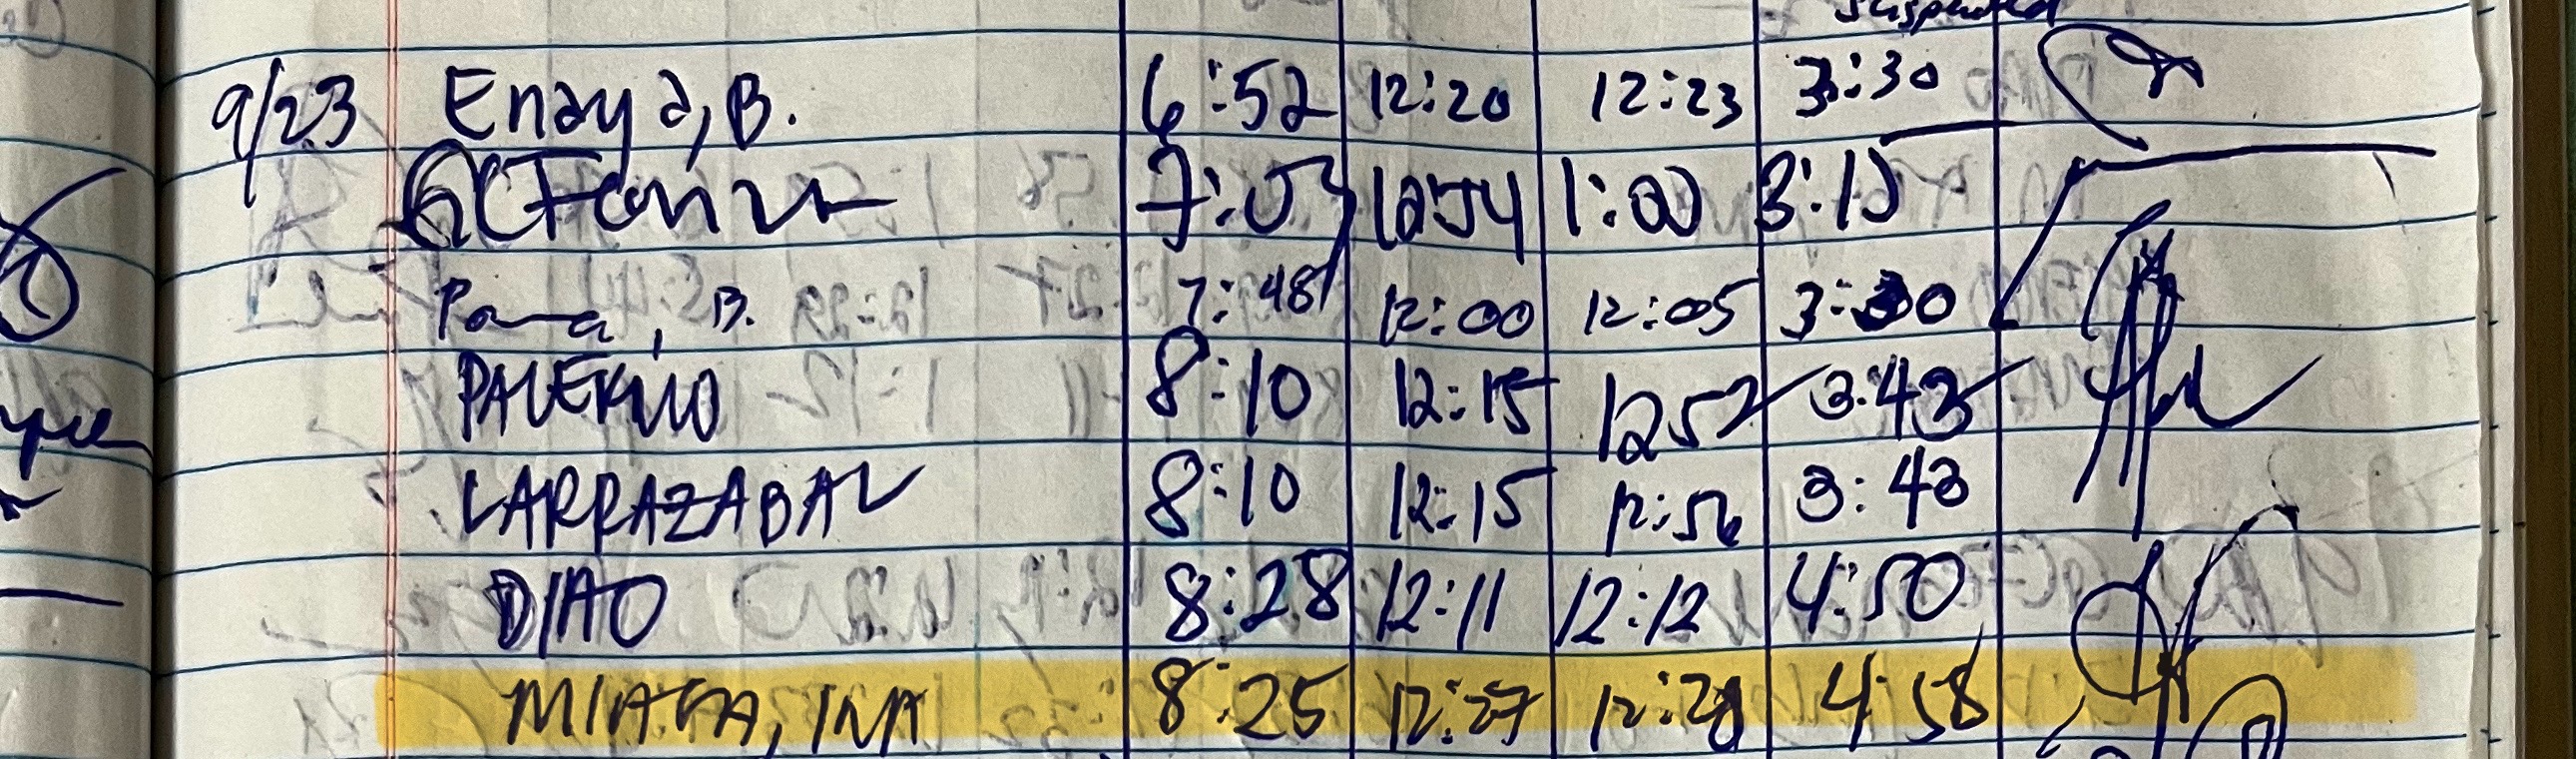 suspended
9/23 Enaya, B. 6:52 12:20 12:23 3:30
7:03 12:54 1:00 3:10
Pama, B. 7:48 12:00 12:05 3:30
PALERMO 8:10 12:15 1252 3:43
LARRAZABAL 8:10 12:15 12:56 3:43
DIAO 8:28 12:11 12:12 4:50
MIAGA, INA 8:25 12:27 12:28 4:58